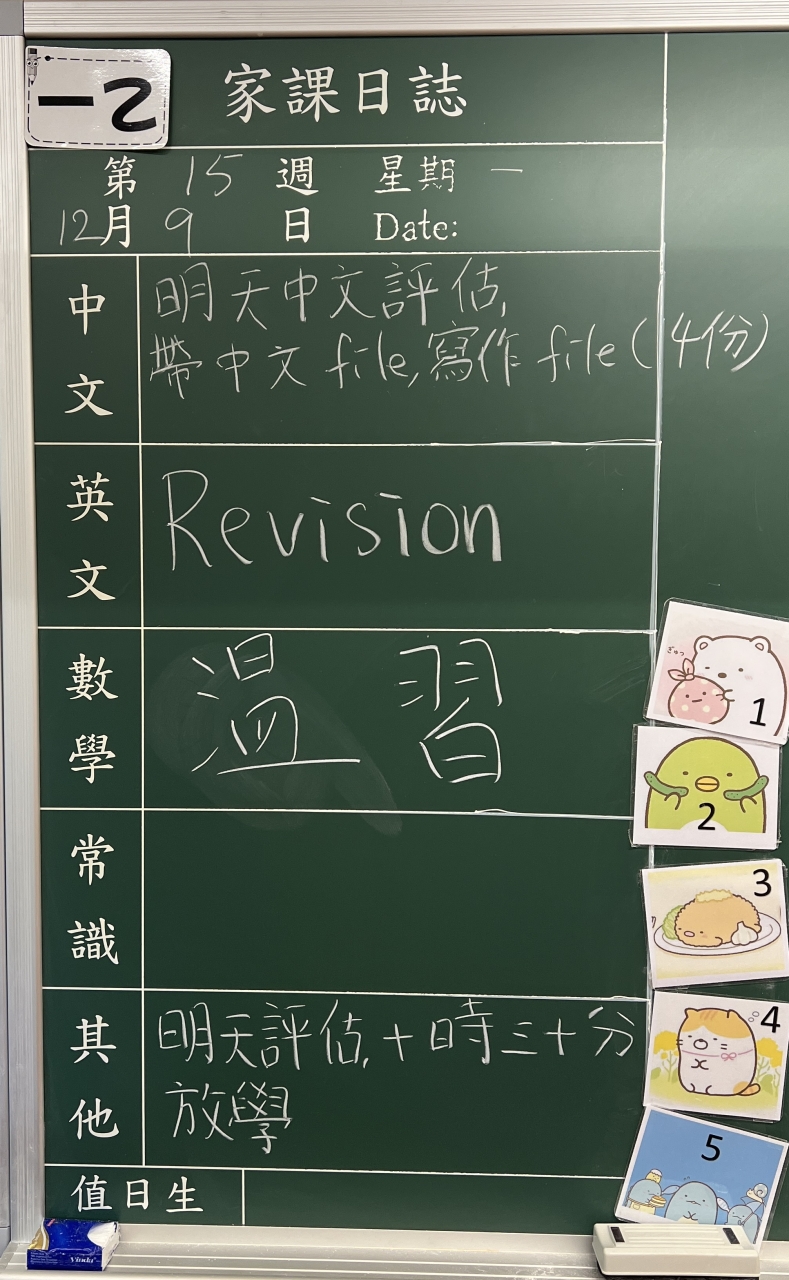 家課日誌
第 15 週 星期 一
12月 9 日 Date:
中文
明天中文評估,
帶中文 file, 寫作 file (4份)
英文
Revision
數學
溫習
常識
其他
明天評估,十時三十分
放學
值日生
ぎゅっ
1
2
3
4
5
Vinda